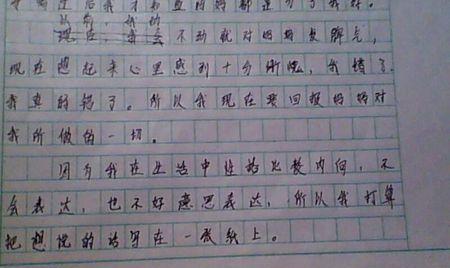 以前，我动
不动就对妈妈发脾气，
现在想起来心里感到十分惭愧，我错了，
我真的错了。所以我现在要回报妈妈对
我所做的一切。
因为我在生活中性格比较内向，不
会表达，也不好意思表达，所以我打算
把想说的话写在一张纸上。